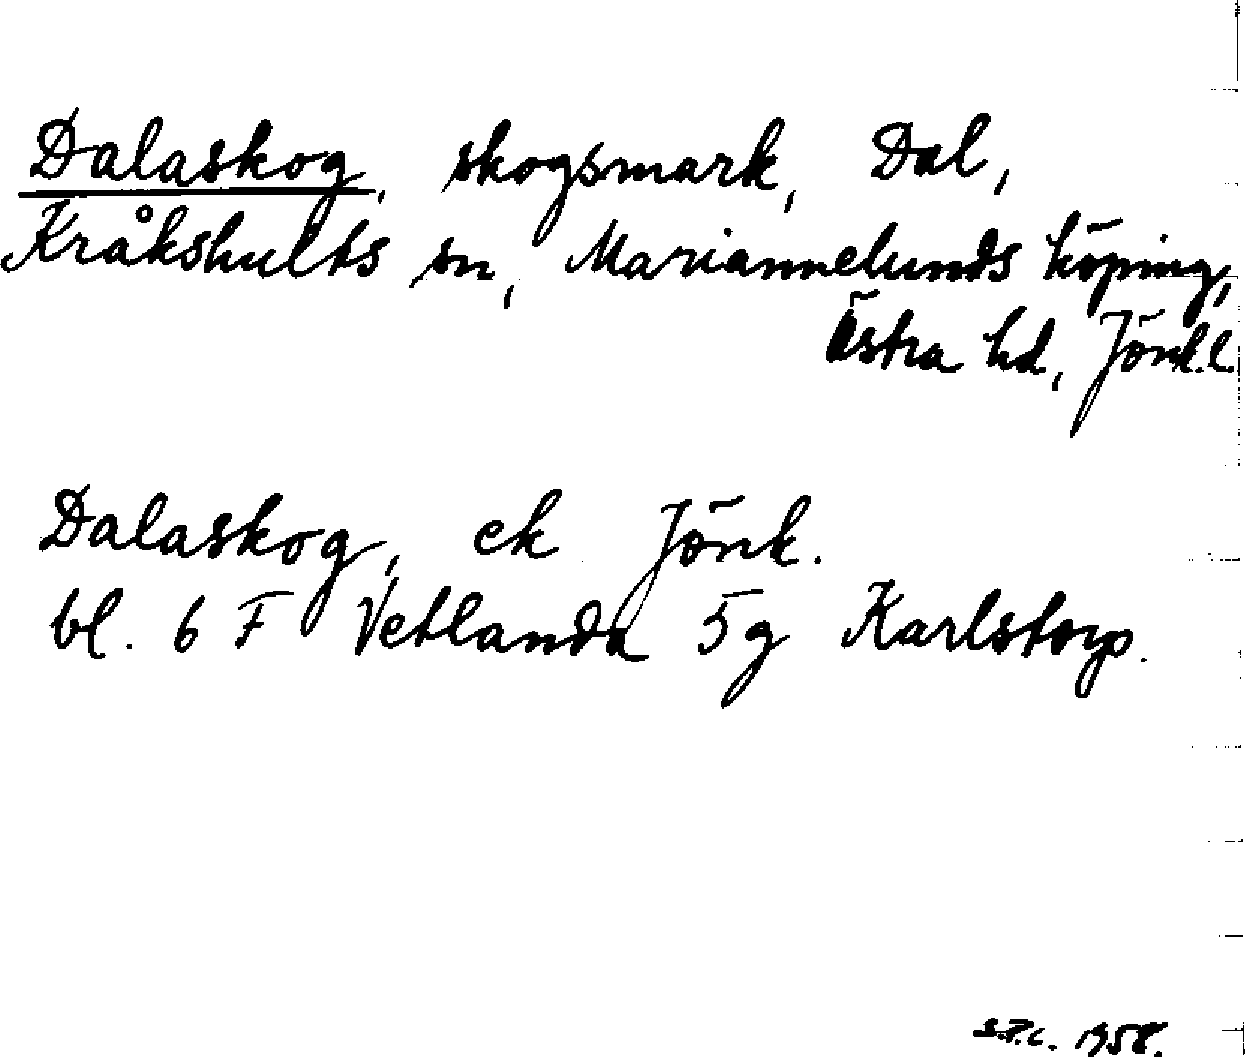 Dalaskog, skogsmark, Dal,
Kråkshults sn, Mariannelunds köping,
Östra hd, Jönk.l.
Dalaskog, ek Jönk.
bl. 6 F Vetlanda 5g Karlstorp.
S.P.C. 1958.